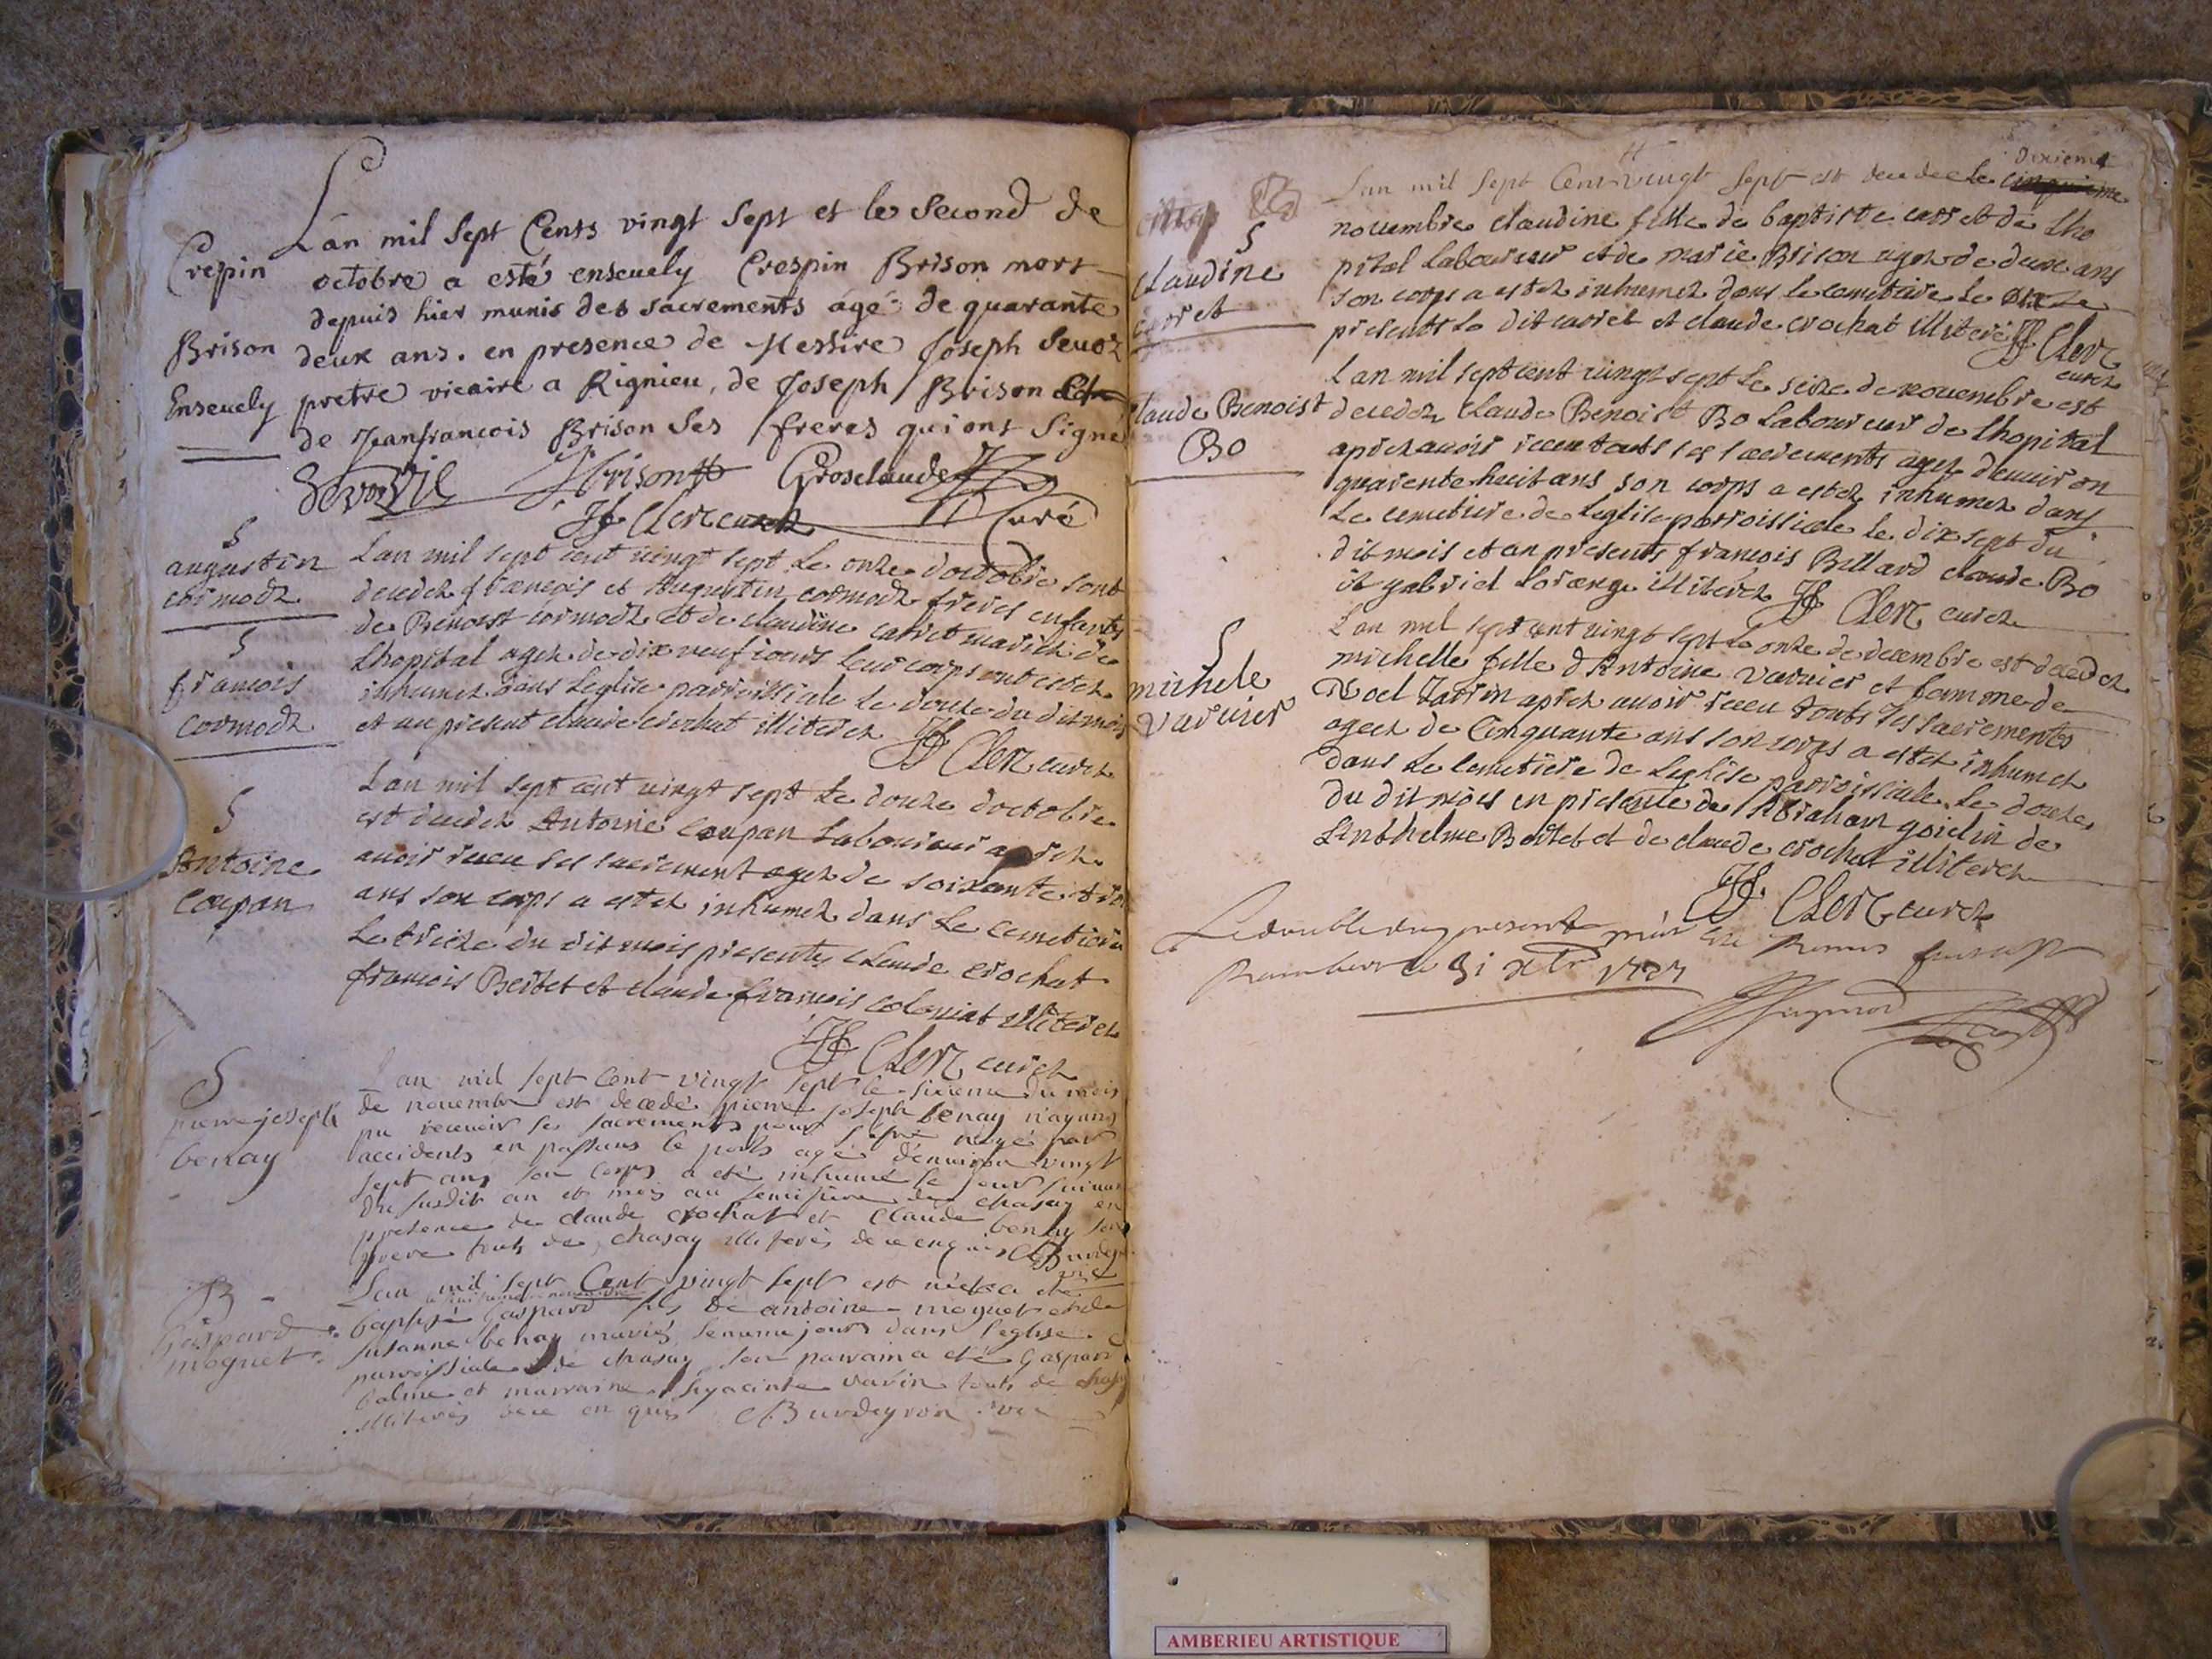 Crepin
Brison
Enseuely
Lan mil Sept Cents vingt Sept et le Second de
octobre a esté enseuely Crespin Brison mort
depuis hier munis des sacrements agé de quarante
deux ans. en presence de Messire Joseph Seuoz
pretre vicaire a Rignieu, de Joseph Brison et
de Jeanfrancois Brison Ses freres qui ont Signé
J Brison Groselaude
JF Clerc curez Curé
S
augustin
cormodz
S
francois
cormodz
Lan mil sept cent vingt sept Le onze doctobre sont
decedez francois et Augustin cormodz freres enfants
de Benoist cormodz et de claudine carret mariez de
Lhopital agez de dix neuf iours leur corps ont estez
inhumez dans Leglise parroissiale Le douze du dit mois
et an present claude crochat illiterez JF Clerc curez
S
Antoine
Coupan
Lan mil sept cent vingt sept Le douze doctobre
est decedez Antoine Coupan Laboureur aprez
auoir receu ses sacrement agez de soixante et dix
ans son corps a estez inhumez dans Le cemetiere
Le treize du dit mois presents claude crochat
francois Bertet et claude francois coloniat illiterez
JF Clerc curez
S
pierre joseph
benay
Lan mil sept Cent vingt sept le sixieme du mois
de novembre est decedé pierre joseph benay n'ayant
pu recevoir ses sacrements pour s'estre noyé par
accidents en passant le ports agé d'environ vingt
sept ans son corps a eté inhumé le jour suivant
du susdit an et mois au semistiere de chasay en
presence de claude crochat et Claude benay son
frere touts de chasay illiterés de ce enquis
vic
B
Gaspard
moguet
Lan mil sept Cent vingt sept est né et a eté
baptisé Gaspard fils de antoine moguet et de
susanne benay mariés le meme jour dans l'eglise
parroissiale de chasay son parrain a eté Gaspard
balme et marraine hyacinte varin touts de chasay
illiterés de ce enquis Burdeyron vic
Claudine
carret
Lan mil sept Cent vingt Sept est decedee le cinquieme dixieme
nouembre claudine fille de baptiste carret de Lho
pital Laboureur et de marie Brison agez de deux ans
son corps a estez inhumez dans le cemetiere Le onze
presents Le dit carret et claude crochat illiterez JF Clerc
curez
S
Claude Benoist
Bo
Lan mil sept cent vingt sept Le seize de nouembre est
decedez claude Benoist Bo Laboureur de Lhopital
aprez auoir receu touts ses sacrements agez denuiron
quarente huit ans son corps a estez inhumez dans
Le cemetiere de Leglise parroissiale le dix sept du
dit mois et an presents francois Billard claude Bo
et gabriel Lorange illiterez JF Clerc curez
S
michele
varnier
Lan mil sept cent vingt sept Le onze de decembre est decedez
michelle fille d'Antoine varnier et femme de
Noel Varrin aprez auoir receu touts ses sacrements
agez de Cinquante ans son corps a estez inhumez
dans Le Cemetiere de Leglise parroissiale Le douze
du dit mois en presence de Abraham goiclin de
Linthelme Bertet et de claude crochat illiterez
JF Clerc curez
Le double du present
Rambert a 31 xbre 1727
AMBERIEU ARTISTIQUE